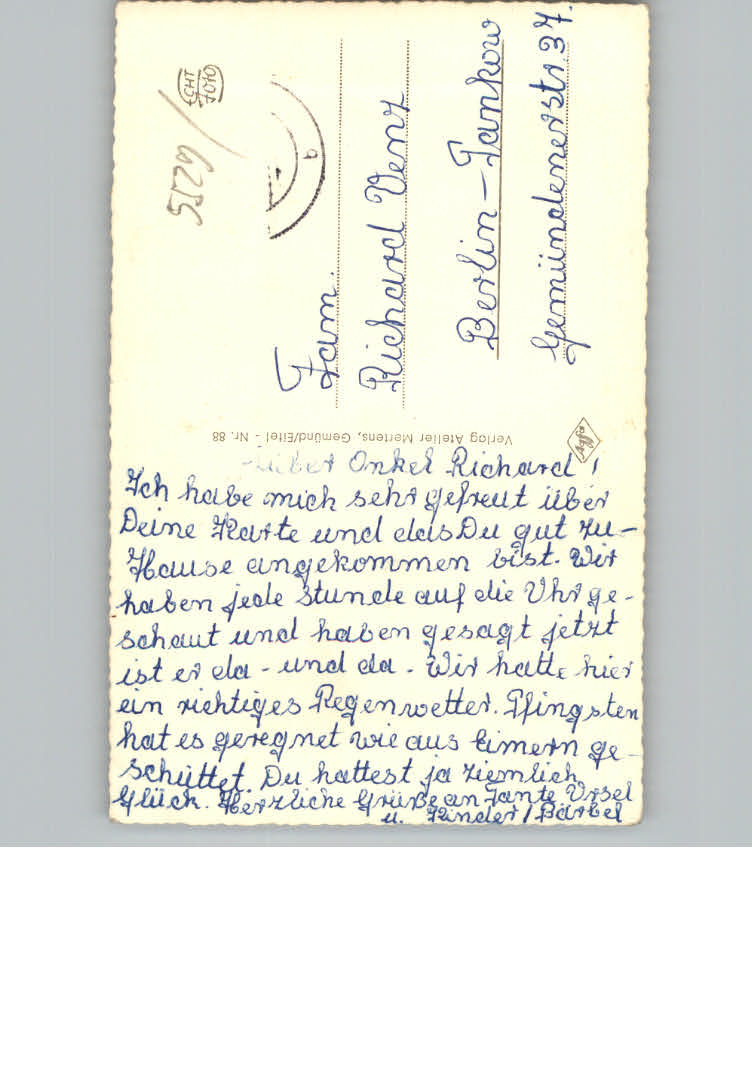 Lieber Onkel Richard!
Ich habe mich sehr gefreut über
Deine Karte und das Du gut zu-
Hause angekommen bist. Wir
haben jede Stunde auf die Uhr ge-
schaut und haben gesagt jetzt
ist er da - und da. Wir hatte hier
ein richtiges Regenwetter. Pfingsten
hat es geregnet wie aus Eimern ge-
schüttet. Du hattest ja ziemlich
Glück. Herzliche Grüße an Tante Ursel
u. Kinder! Bärbel
Verlag Atelier Mertens, Gemünd/Eifel - Nr. 88
Agfa
Fam.
Richard Venz
Berlin-Tankow
Gemündenerstr. 37.
ECHT
FOTO